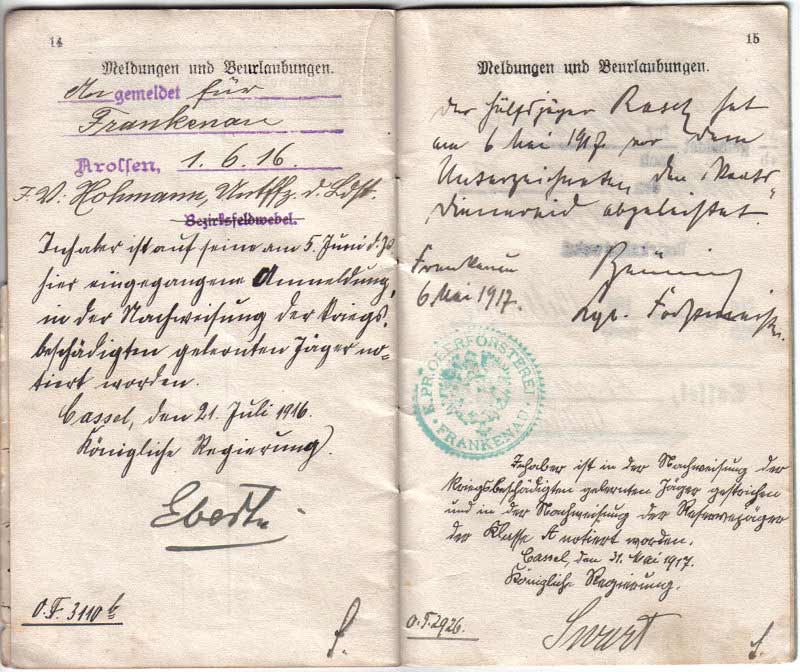 14
Meldungen und Beurlaubungen.
Angemeldet für
Frankenau
Arolsen, 1. 6. 16.
J. V: Hohmann, Untffz. d. Ldst.
Bezirksfeldwebel.
Inhaber ist auf seine am 5. Juni d. Js
hier eingegangene Anmeldung,
in der Nachweisung der kriegs-
beschädigten gelernten Jäger no-
tiert worden.
Cassel, den 21. Juli 1916.
Königliche Regierung.
O. F. 3110
15
Meldungen und Beurlaubungen.
Der Hülfsjäger hat
am 6 Mai 1917 vor dem
Unterzeichneten den Staats-
dienereid abgeleistet.
Frankenau
6 Mai 1917.
Kgl. Forstmeister.
K. PR. OBERFÖRSTEREI
FRANKENAU
Inhaber ist in der Nachweisung der
kriegsbeschädigten gelernten Jäger gestrichen
und in der Nachweisung der Reservejäger
der Klasse A notiert worden.
Cassel, den 31. Mai 1917.
Königliche Regierung.
O. F. 2926.